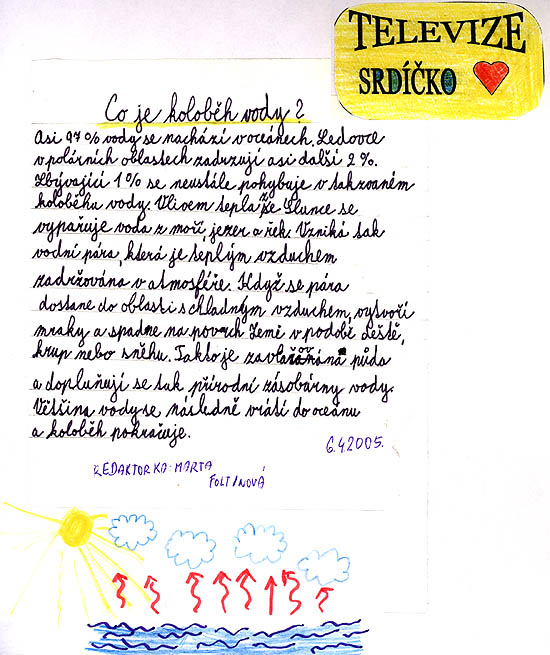 TELEVIZE
SRDÍČKO
Co je koloběh vody?
Asi 97 % vody se nachází v oceánech, Ledovce
v polárních oblastech zadužují asi další 2 %.
Zbývající 1 % se neustále pohybuje v takzvaném
koloběhu vody. Vlivem tepla ze Slunce se
vypařuje voda z moří, jezer a řek. Vzniká tak
vodní pára, která je teplým vzduchem
zadržována v atmosféře. Když se pára
dostane do oblasti s chladným vzduchem, vytvoří
mraky a spadne na povrch Země v podobě deště,
krup nebo sněhu. Takto je půda
a doplňují se tak přírodní zásobárny vody.
Většina vody se následně vrátí do oceánu
a koloběh pokračuje.
6.4.2005.
REDAKTORKA: MARTA
FOLTINOVÁ